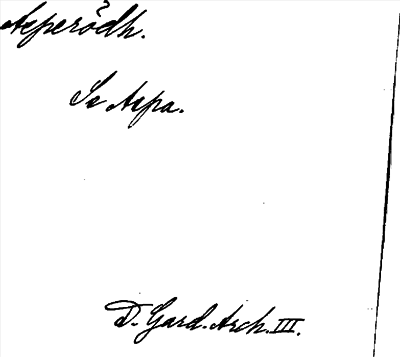 Asperödh.
Se Aspa.
D. Gard. Arch. III.